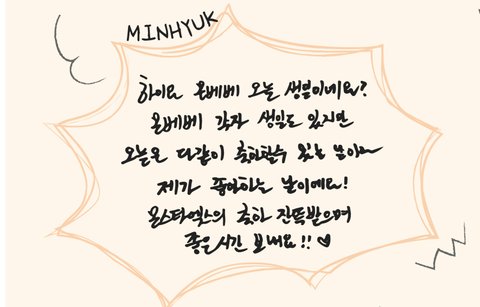 MINHYUK
하이요 몬베베 오늘 생일이네요?
몬베베 각자 생일도 있지만
오늘은 다같이 축하할수 있는 날이라
제가 좋아하는 날이에요!
몬스타엑스의 축하 잔뜩받으며
좋은시간 보내요!! ♡